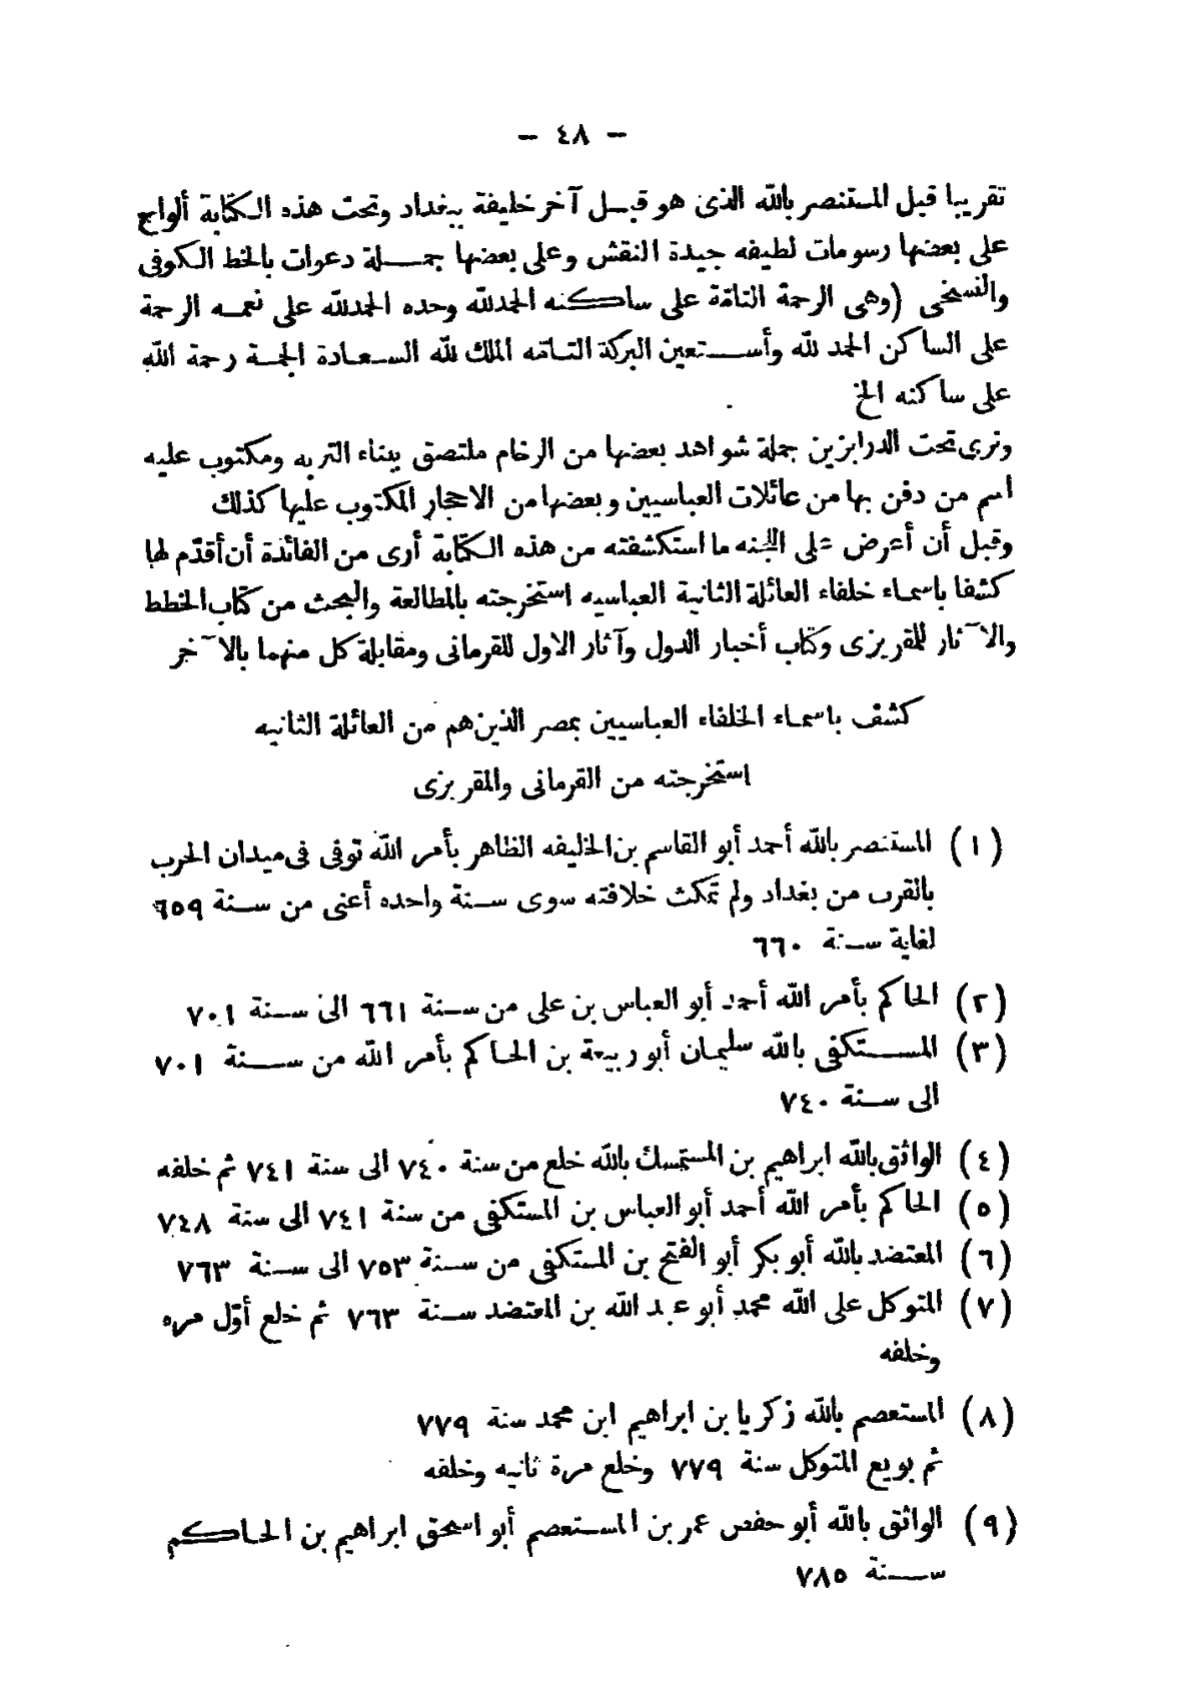 — ٤٨ —
تقريبا قبل المستنصر بالله الذى هو قبل آخر خليفة ببغداد وتحت هذه الكتابة ألواح
على بعضها رسومات لطيفه جيدة النقش وعلى بعضها جملة دعوات بالخط الكوفى
والنسخى (وهى الرحمة التامّة على ساكنه الحمدلله وحده الحمدلله على نعمه الرحمة
على الساكن الحمد لله وأستعين البركة التامه الملك لله السعادة الجمة رحمة الله
على ساكنه الخ
وترى تحت الدرابزين جملة شواهد بعضها من الرخام ملتصق ببناء التربه ومكتوب عليه
اسم من دفن بها من عائلات العباسيين وبعضها من الاحجار المكتوب عليها كذلك
وقبل أن أعرض على اللجنه ما استكشفته من هذه الكتابة أرى من الفائدة أن أقدّم لها
كشفا باسماء خلفاء العائلة الثانية العباسيه استخرجته بالمطالعة والبحث من كتاب الخطط
والآثار للمقريزى وكتاب أخبار الدول وآثار الاول للقرمانى ومقابلة كل منهما بالآخر
كشف باسماء الخلفاء العباسيين بمصر الذين هم من العائلة الثانيه
استخرجته من القرمانى والمقريزى
(١) المستنصر بالله أحمد أبو القاسم بن الخليفه الظاهر بأمر الله توفى فى ميدان الحرب
بالقرب من بغداد ولم تمكث خلافته سوى سنة واحده أعنى من سنة ٦٥٩
لغاية سنة ٦٦٠
(٢) الحاكم بأمر الله أحمد أبو العباس بن على من سنة ٦٦١ الى سنة ٧٠١
(٣) المستكفى بالله سليمان أبو ربيعة بن الحاكم بأمر الله من سنة ٧٠١
الى سنة ٧٤٠
(٤) الواثق بالله ابراهيم بن المستمسك بالله خلع من سنة ٧٤٠ الى سنة ٧٤١ ثم خلفه
(٥) الحاكم بأمر الله أحمد أبو العباس بن المستكفى من سنة ٧٤١ الى سنة ٧٤٨
(٦) المعتضد بالله أبو بكر أبو الفتح بن المستكفى من سنة ٧٥٣ الى سنة ٧٦٣
(٧) المتوكل على الله محمد أبو عبد الله بن المعتضد سنة ٧٦٣ ثم خلع أوّل مره
وخلفه
(٨) المستعصم بالله زكريا بن ابراهيم ابن محمد سنة ٧٧٩
ثم بويع المتوكل سنة ٧٧٩ وخلع مرة ثانيه وخلفه
(٩) الواثق بالله أبو حفص عمر بن المستعصم أبو اسحق ابراهيم بن الحاكم
سنة ٧٨٥